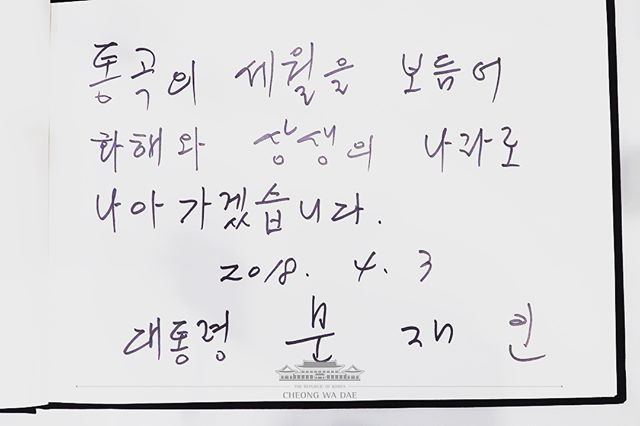 통곡의 세월을 보듬어
화해와 상생의 나라로
나아가겠습니다.
2018. 4. 3
대통령 문 재 인
THE REPUBLIC OF KOREA
CHEONG WA DAE